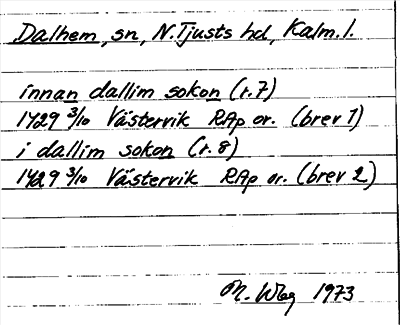 Dalhem, sn, N. Tjusts hd, Kalm. l.
innan dallim sokon (r. 7)
1429 3/10 Västervik RAp or. (brev 1)
i dallim sokon (r. 8)
1429 3/10 Västervik RAp or. (brev 2)
M. Wbg 1973